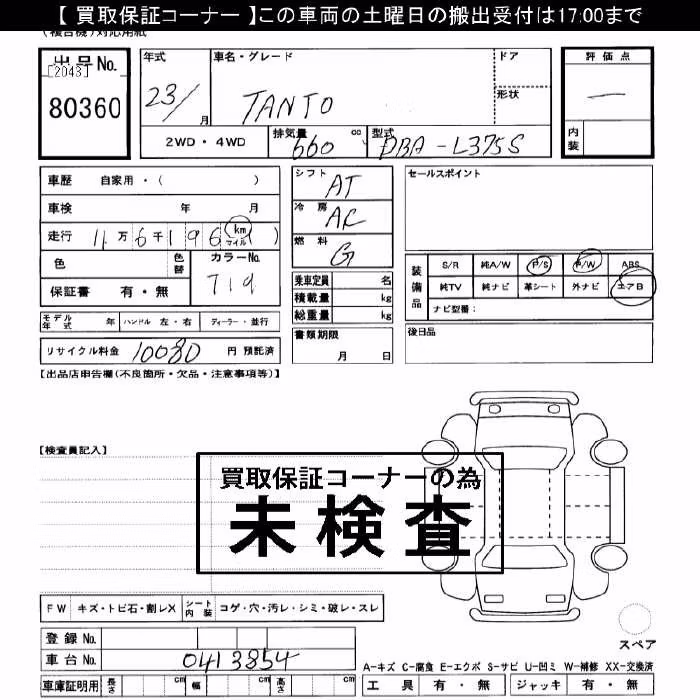 【 買取保証コーナー 】この車両の土曜日の搬出受付は17:00まで
(複合機)対応用紙
出品No.
[2043]
80360
年式
23/
月
車名・グレード
TANTO
ドア
形状
2WD・4WD
排気量
660
cc
型式
DBA-L375S
評価点
—
内装
車歴 自家用・( )
車検 年 月
走行 11万6千196 km マイル )
色 色替 カラーNo.
T19
保証書 有・無
モデル年式 年 ハンドル 左・右 ディーラー・並行
リサイクル料金 10080 円 預託済
シフト AT
冷房 AC
燃料 G
乗車定員 名
積載量 kg
総重量 kg
書類期限
月 日
セールスポイント
装備品
S/R 純A/W P/S P/W ABS
純TV 純ナビ 革シート 外ナビ エアB
ナビ型番:
後日品
【出品店申告欄(不良箇所・欠品・注意事項等)】
【検査員記入】
買取保証コーナーの為
未検査
FW キズ・トビ石・割レX シート内装 コゲ・穴・汚レ・シミ・破レ・スレ
登録No.
車台No. 0413854
車庫証明用 長さ cm 幅 cm 高さ cm
スペア
A-キズ C-腐食 E-エクボ S-サビ U-凹ミ W-補修 XX-交換済
工具 有・無 ジャッキ 有・無